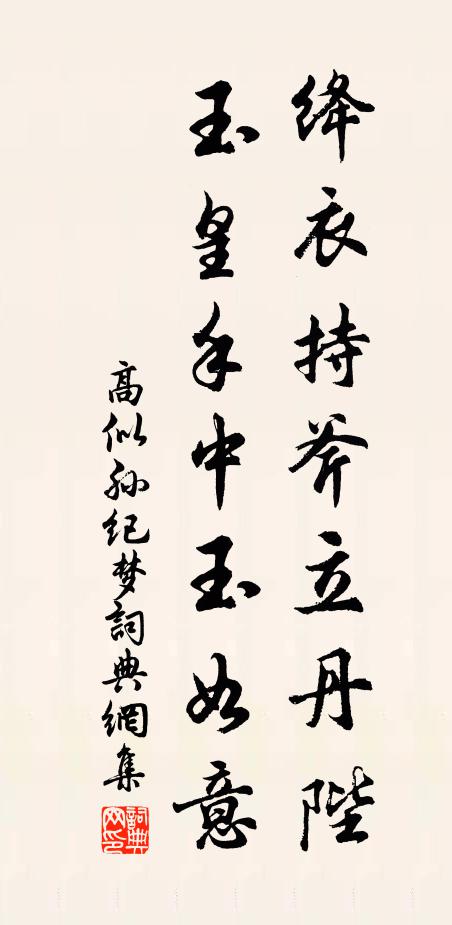 绛衣持斧立丹陛
玉皇手中玉如意
高似孙纪梦词典網集
詞典網印